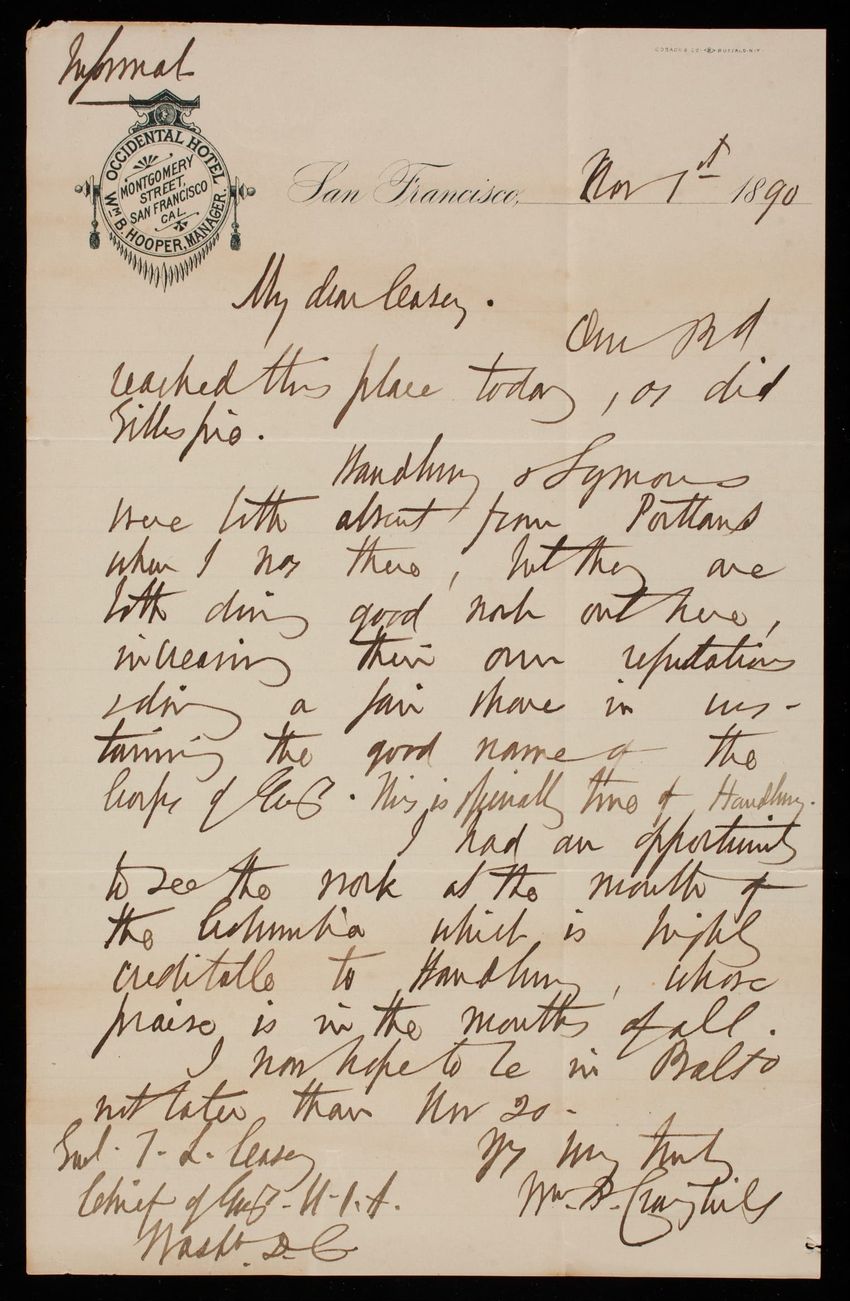 Informal
COSACK & CO. BUFFALO N.Y.
OCCIDENTAL HOTEL
MONTGOMERY
STREET,
SAN FRANCISCO
CAL
WM B. HOOPER, MANAGER.
San Francisco, Nov 1st 1890
My dear Casey.
Our Bd
reached this place today, as did
Gillespie.
Handbury & Symons
were both absent from Portland
when I was there, but they are
both doing good work out here,
increasing their own reputations
& doing a fair share in sus-
taining the good name of the
Corps of Eng. This is specially true of Handbury.
I had an opportunity
to see the work at the mouth of
the Columbia which is highly
creditable to Handbury, whose
praise is in the mouths of all.
I now hope to be in Balto
not later than Nov 20-
Yrs very truly
Wm. P. Craighill
Genl. T. L. Casey
Chief of Eng. U.S.A.
Washn. D.C.